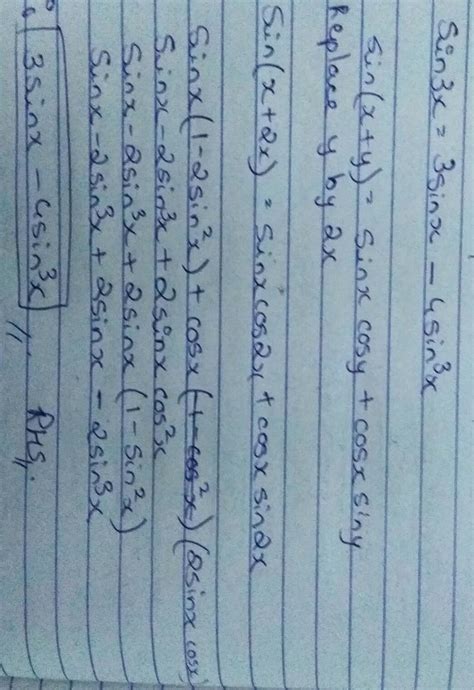 Sin3x = 3sinx - 4sin³x
Sin(x+y) = sinx cosy + cosx siny
Replace y by 2x
Sin(x+2x) = sinx cos2x + cosx sin2x
Sinx(1-2sin²x) + cosx (1-cos²x) (2sinx cosx)
Sinx - 2sin³x + 2sinx cos²x
Sinx - 2sin³x + 2sinx (1-sin²x)
Sinx - 2sin³x + 2sinx - 2sin³x
3sinx - 4sin³x // RHS//.